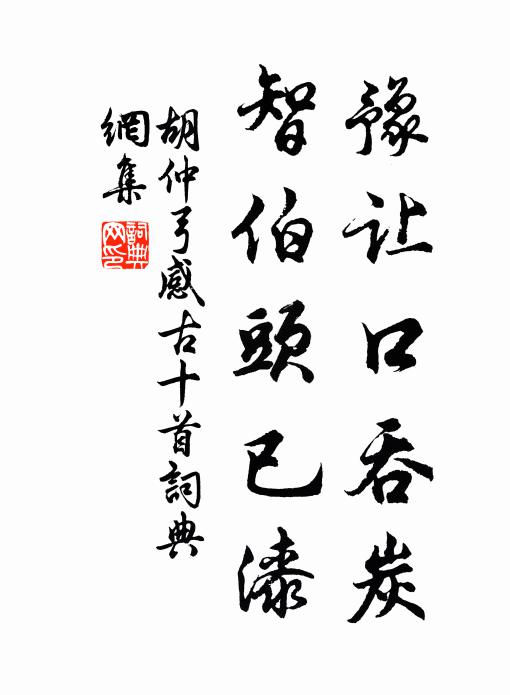 豫让口吞炭
智伯頭已漆
胡仲弓感古十首詞典
網集
詞典
网印